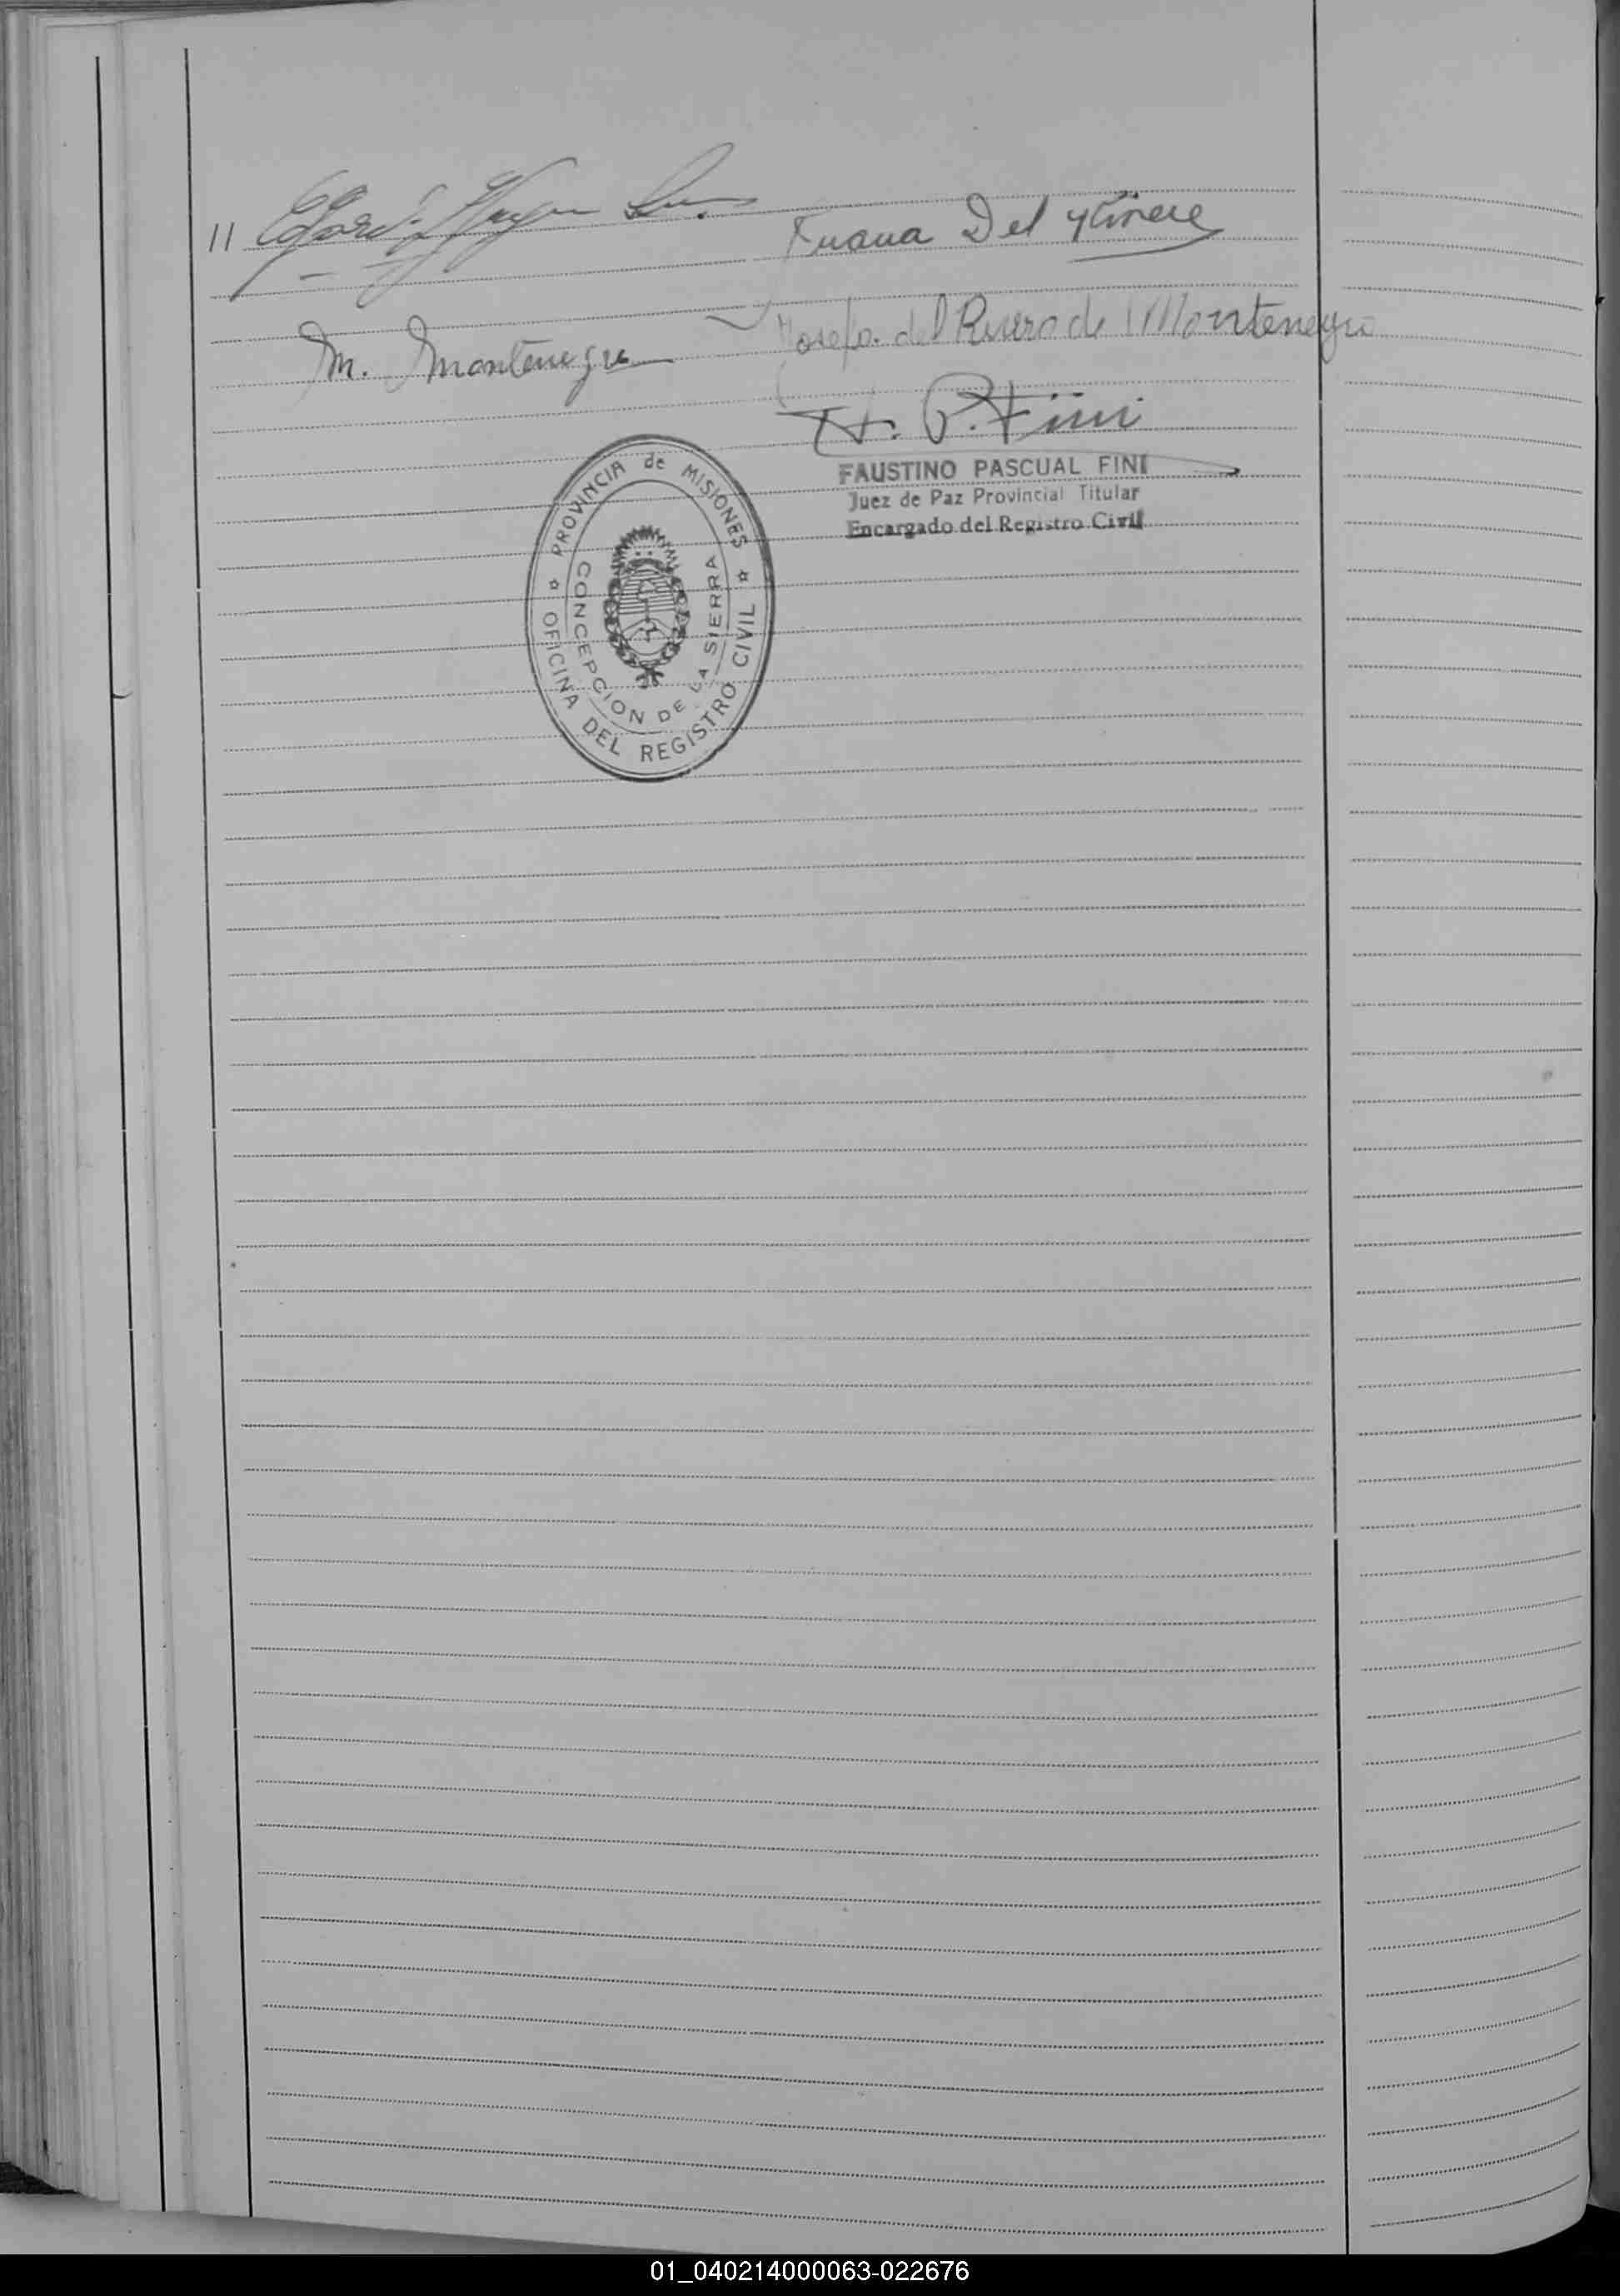 11
Juana Del
M. Montenegro Josefa del Rivero de Montenegro
F. P. Fini
FAUSTINO PASCUAL FINI
Juez de Paz Provincial Titular
Encargado del Registro Civil
PROVINCIA de MISIONES
OFICINA DEL REGISTRO CIVIL
CONCEPCION DE LA SIERRA
01_040214000063-022676